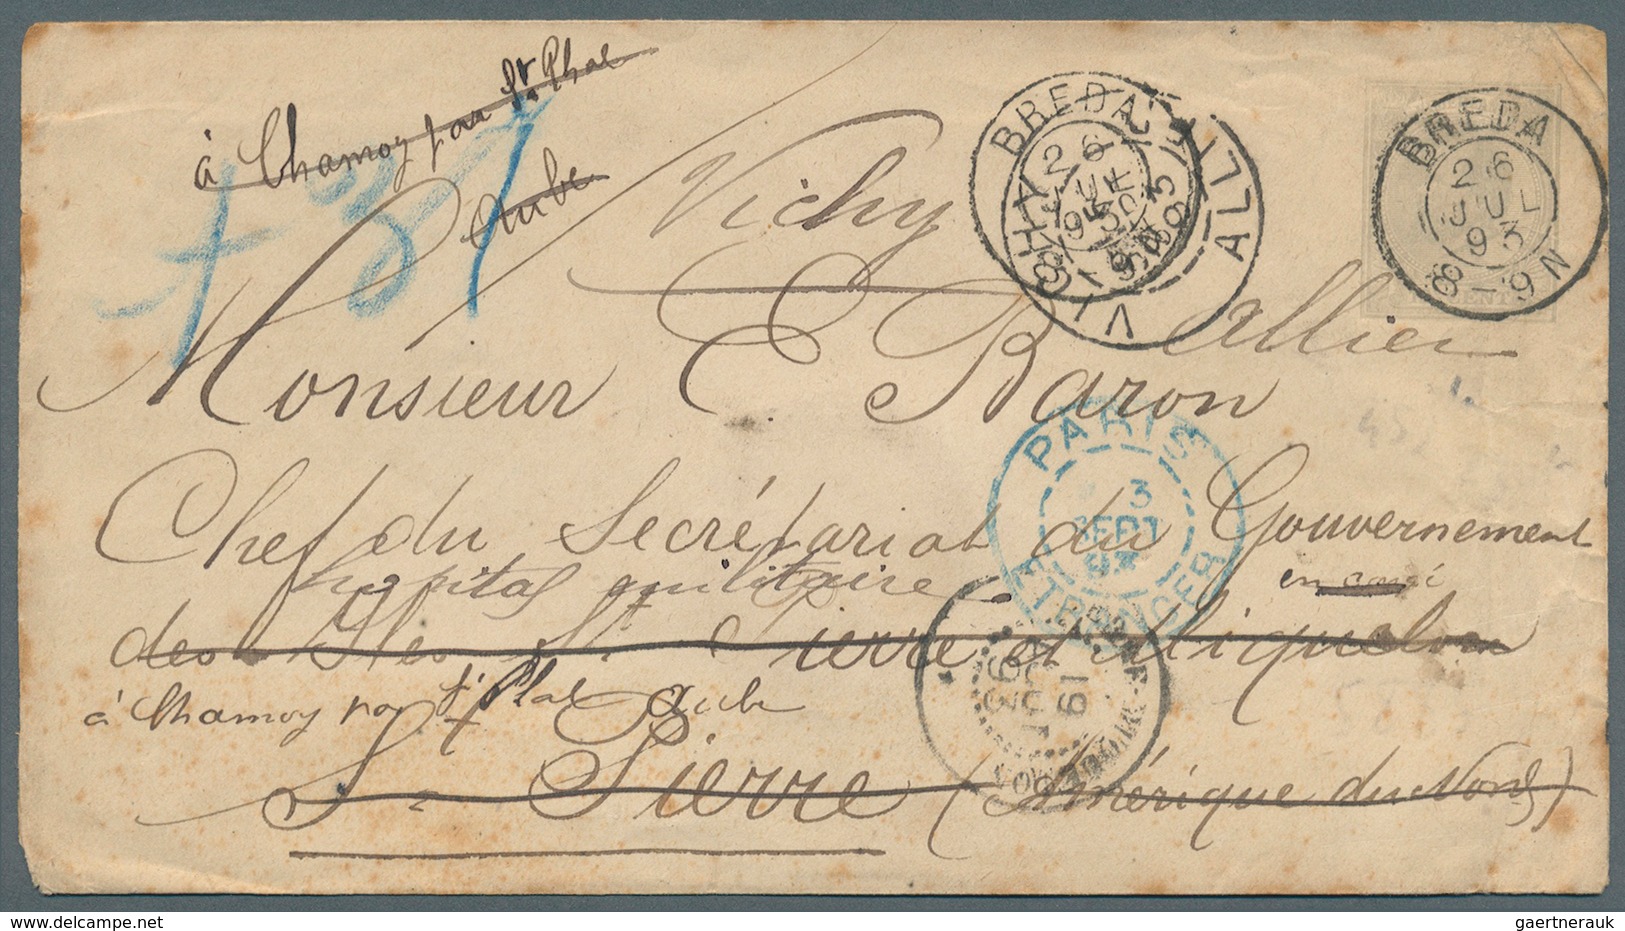 à Chamoy par St. Phal
Aube
Vichy
Allier
Monsieur C. Baron
Chef du Secrétariat du Gouvernement
hopital militaire
en congé
des Iles St. Pierre et Miquelon
à Chamoy par St Phal Aube
St. Pierre (Amérique du Nord)
BREDA
26
JUL
93
8-9N
BREDA
26
JUL
93
8-9N
VICHY
ALLIER
PARIS
3
SEPT
93
ETRANGER
gaertnerauk